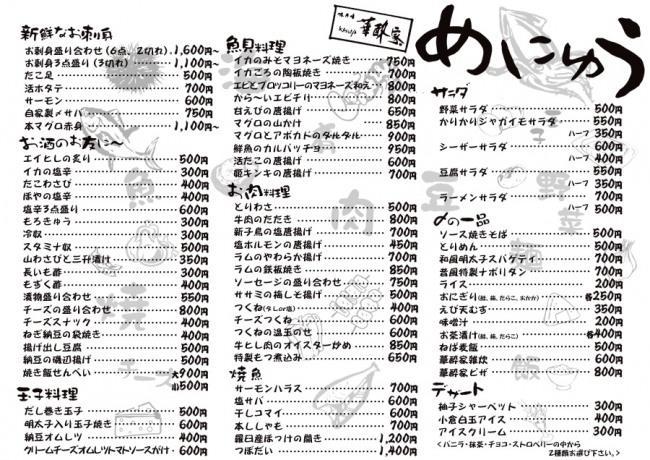 めにゅう
華酔家
新鮮なお刺身
お刺身盛り合わせ(6点、2切れ) 1,600円~
お刺身3点盛り(3切れ) 1,100円~
たこ足 500円
活ホタテ 700円
サーモン 600円
自家製〆サバ 750円
本マグロ赤身 1,100円~
お酒のお友に~
エイヒレの炙り 500円
イカの塩辛 300円
たこわさび 400円
ほやの塩辛 400円
塩辛3点盛り 600円
もろきゅう 300円
冷奴 300円
スタミナ奴 500円
山わさびと三升漬け 350円
長いも酢 300円
もずく酢 400円
漬物盛り合わせ 550円
チーズの盛り合わせ 800円
チーズスナック 400円
ねぎ納豆の袋焼き 400円
揚げ出し豆腐 500円
納豆の磯辺揚げ 500円
焼き飯せんべい 大900円
小500円
玉子料理
だし巻き玉子 500円
明太子入り玉子焼き 600円
納豆オムレツ 400円
クリームチーズオムレツトマトソースがけ 600円
魚貝料理
イカのみそマヨネーズ焼き 750円
イカごろの陶板焼き 700円
エビとブロッコリーのマヨネーズ和え 800円
から~いエビチリ 800円
甘えびの唐揚げ 600円
マグロの山かけ 850円
マグロとアボカドのタルタル 900円
鮮魚のカルパッチョ 950円
活だこの唐揚げ 600円
姫キンキの唐揚げ 700円
お肉料理
とりわさ 500円
牛肉のたたき 800円
新子鳥の塩唐揚げ 700円
塩ホルモンの唐揚げ 450円
ラムのやわらか揚げ 700円
ラムの鉄板焼き 850円
ソーセージの盛り合わせ 750円
ササミの梅しそ揚げ 500円
つくね(タレor塩) 400円
チーズつくね 600円
つくねの温玉のせ 600円
牛ヒレ肉のオイスター炒め 850円
特製もつ煮込み 650円
焼魚
サーモンハラス 700円
塩サバ 600円
干しコマイ 600円
本ししゃも 700円
羅臼産ほっけの開き 1,200円
つぼだい 1,400円
サラダ
野菜サラダ 550円
かりかりジャガイモサラダ 550円
ハーフ 350円
シーザーサラダ 600円
ハーフ 400円
豆腐サラダ 550円
ハーフ 350円
ラーメンサラダ 700円
ハーフ 500円
〆の一品
ソース焼きそば 550円
とりめん 500円
和風明太子スパゲティ 700円
昔風特製ナポリタン 700円
ライス 200円
おにぎり(鮭、梅、たらこ、おかか) 各250円
えび天むす 350円
味噌汁 200円
お茶漬け(鮭、梅、たらこ) 各400円
ねば麦飯 500円
華酔家雑炊 600円
華酔家ピザ 800円
デザート
柚子シャーベット 300円
小倉白玉アイス 400円
アイスクリーム 300円
<バニラ・抹茶・チョコ・ストロベリーの中から
2種類お選び下さい。>
魚
焼
チーズ
肉
豆
玉子
野菜
麺
飯